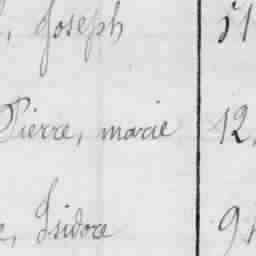 , Joseph
Pierre, marie 12
e, Isidore